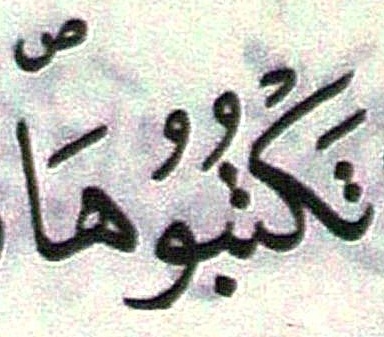 تَكْتُبُوهَاۖ